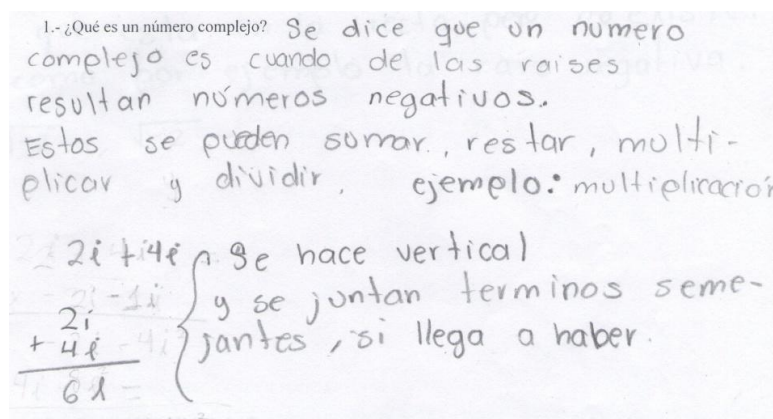 1.- ¿Qué es un número complejo? Se dice que un numero
complejo es cuando de las raises
resultan números negativos.
Estos se pueden sumar, restar, multi-
plicar y dividir. ejemplo: multiplicación
2i + 4i Se hace vertical
y se juntan terminos seme-
jantes, si llega a haber.
2i
+ 4i
6i